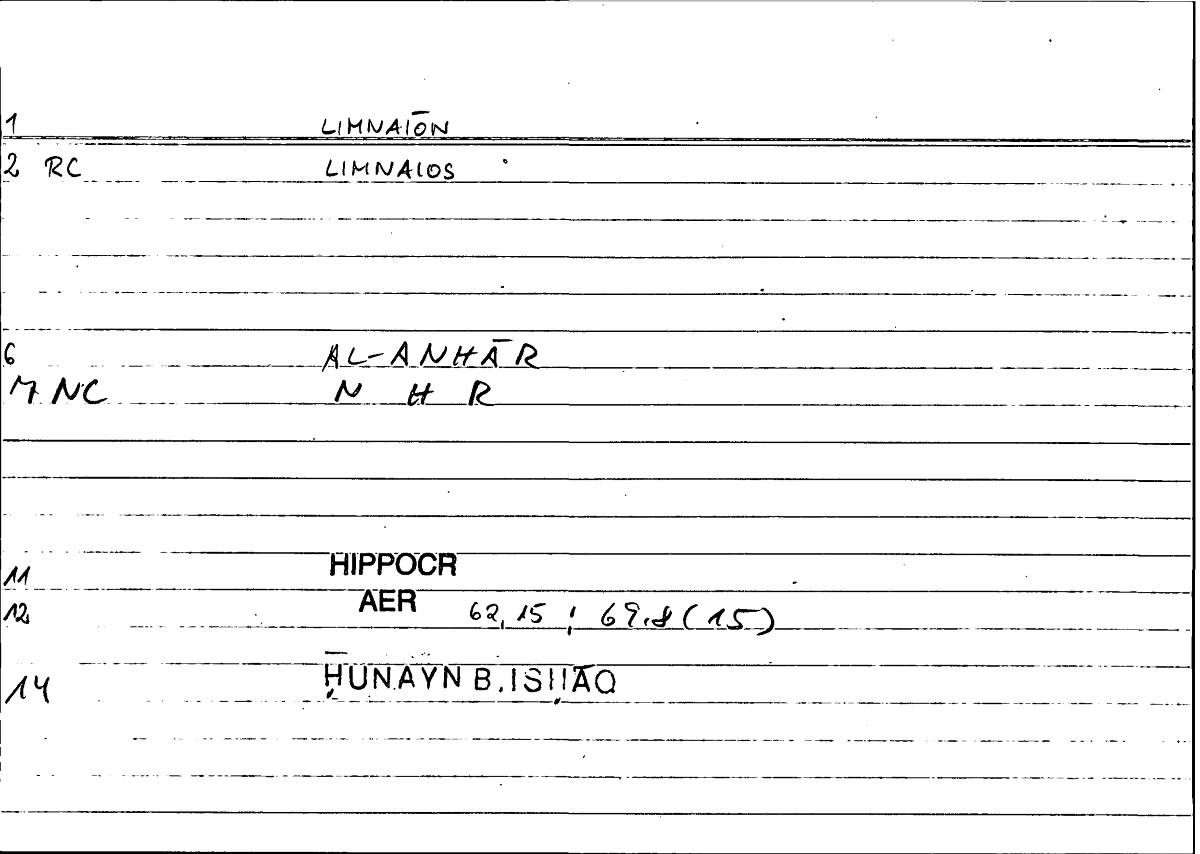 1 LIMNAIŌN
2 RC LIMNAIOS
6 AL-ANHĀR
7 NC N H R
11 HIPPOCR
12 AER 62,15 ; 69,8 (15)
14 ḤUNAYN B. ISḤĀQ